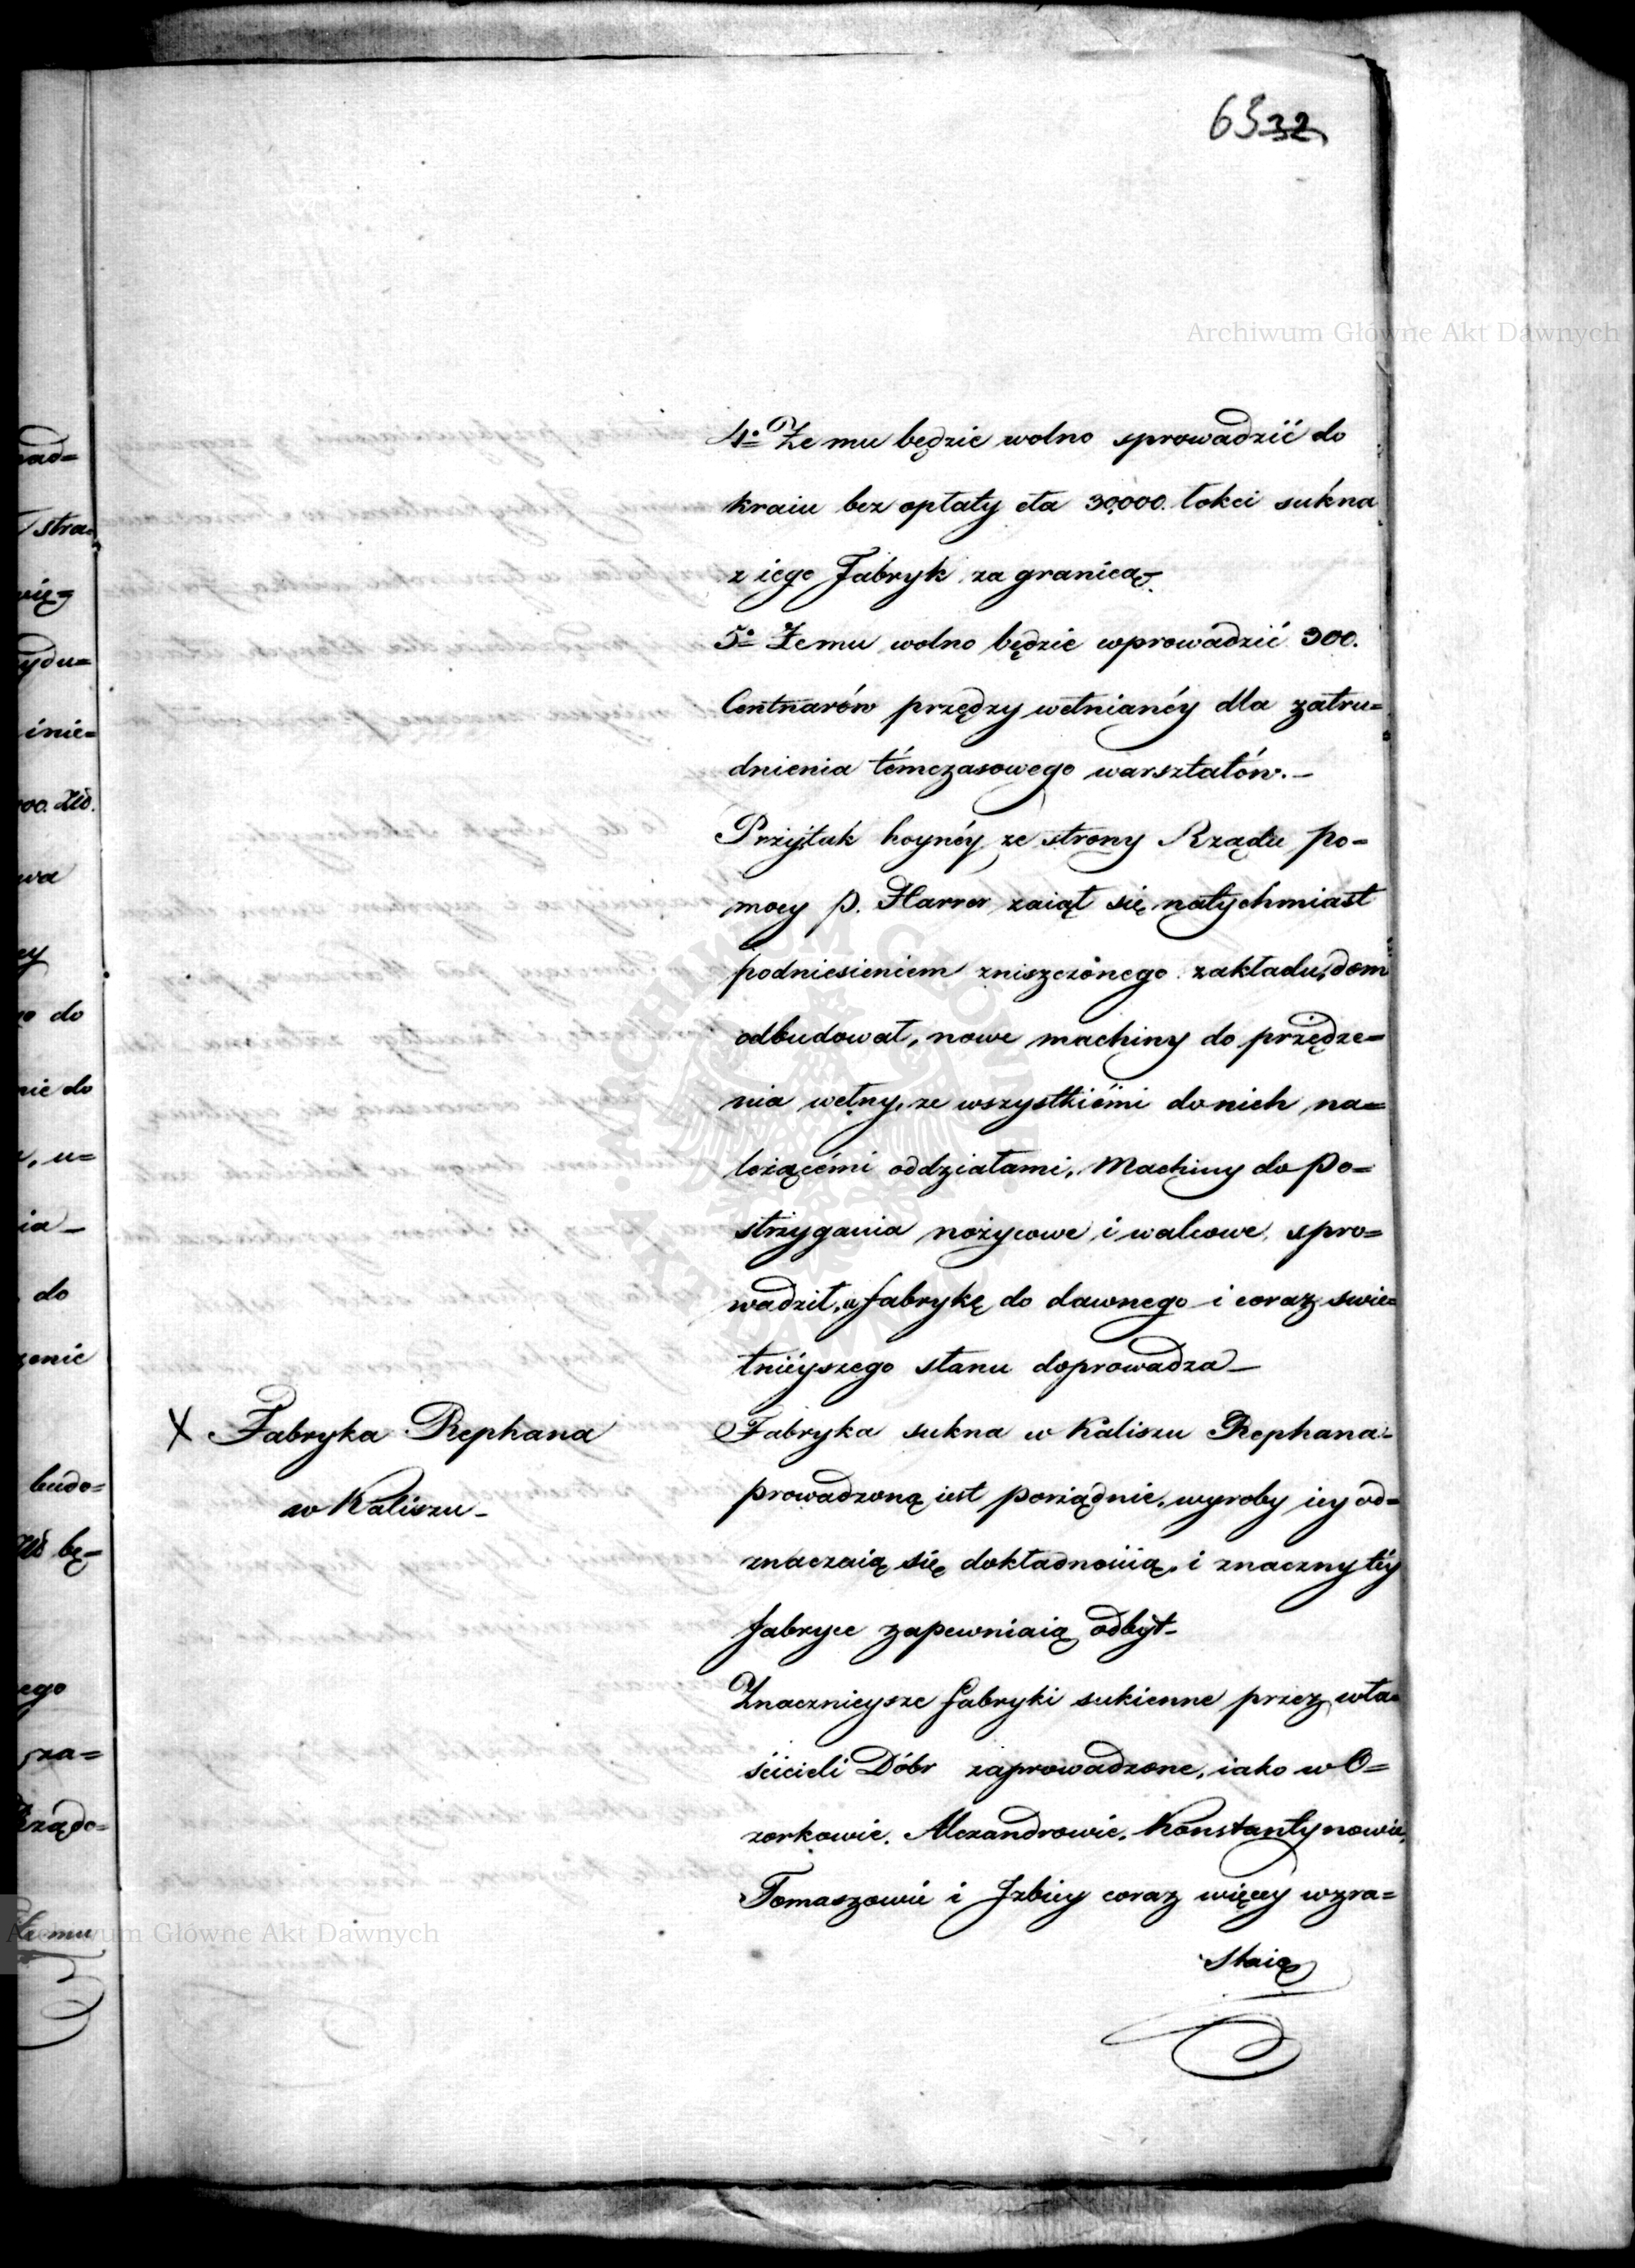 63 32
Archiwum Główne Akt Dawnych
4o Że mu będzie wolno sprowadzić do
kraiu bez opłaty cła 30,000. łokci sukna
z iego Fabryk za granicą.
5o Że mu wolno będzie wprowadzić 300.
Centnarów przędzy wełnianéy dla zatru=
dnienia témczasowego warsztatów. –
Przy tak hoynéy ze strony Rządu po=
mocy p. Harrer zaiął się natychmiast
podniesieniem zniszczonego zakładu, dom
odbudował, nowe machiny do przędze=
nia wełny, ze wszystkiémi do nich na=
leżącémi oddziałami, Machiny do po=
strzygania nożycowe i walcowe, spro=
wadził, a fabrykę do dawnego i coraz swie=
tnieyszego stanu doprowadza –
X Fabryka Rephana
w Kaliszu –
Fabryka sukna w Kaliszu Rephana
prowadzoną iest porządnie, wyroby iey od=
znaczaią się dokładnością, i znaczny téy
fabryce zapewniaią odbyt –
Znacznieysze fabryki sukienne przez wła=
ścicieli Dóbr zaprowadzone, iako w O=
zorkowie, Alexandrowie, Konstantynowie,
Tomaszowie i Izbicy coraz więcey wzra=
staią
ad=
stra=
wię=
ydu=
inie=
00. Złł.
wa
ey
o do
nie do
, u=
ia –
do
zenie
budo=
Złł bę=
ego
za=
Rządo=
Że mu
Archiwum Główne Akt Dawnych
ARCHIWUM GŁÓWNE AKT DAWNYCH